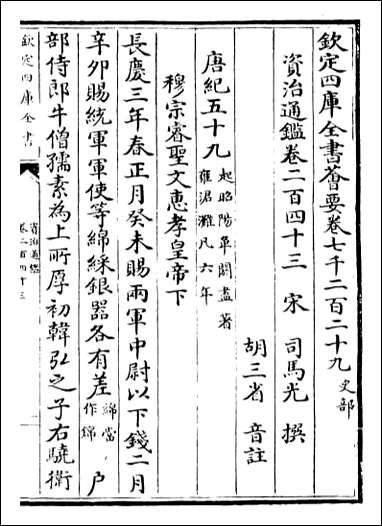 欽定四庫全書薈要卷七千二百二十九 史部
資治通鑑卷二百四十三 宋 司馬光 撰
胡三省 音註
唐紀五十九 起昭陽單閼盡著
雍涒灘凡六年
穆宗睿聖文恵孝皇帝下
長慶三年春正月癸未賜兩軍中尉以下錢二月
辛卯賜統軍軍使等綿綵銀器各有差 綿當
作錦 户
部侍郎牛僧孺素為上所厚初韓弘之子右驍衛
欽定四庫全書
資治通鑑
卷二百四十三